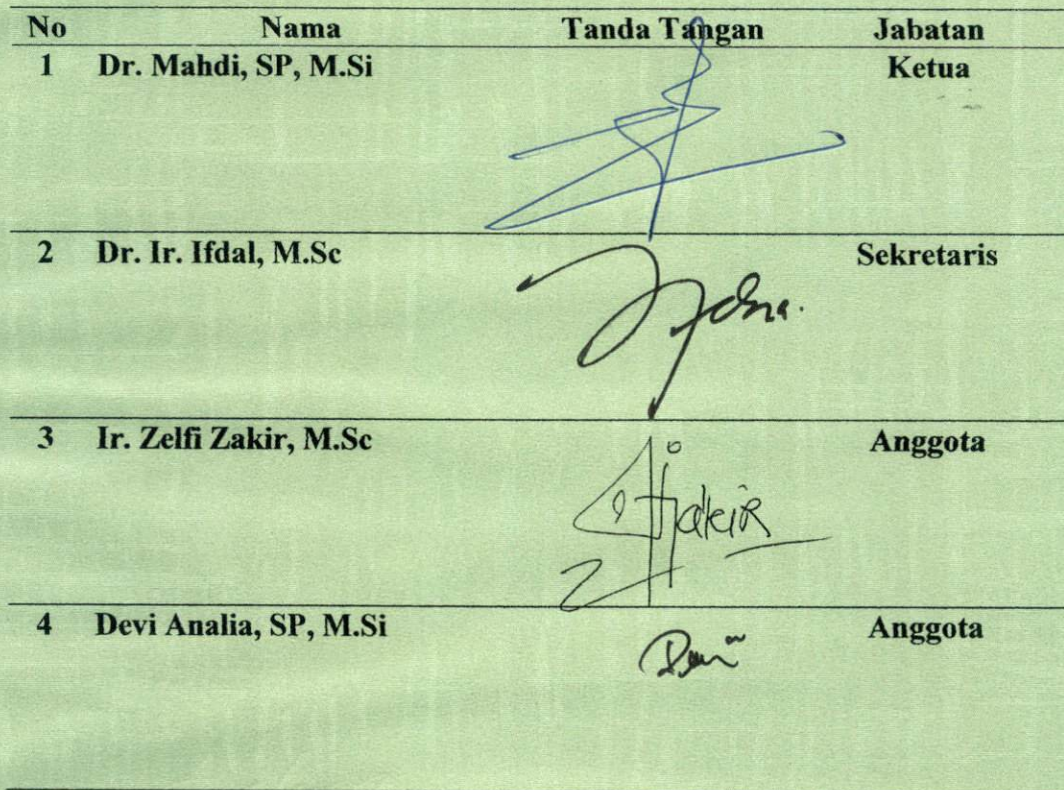 No Nama Tanda Tangan Jabatan
1 Dr. Mahdi, SP, M.Si Ketua
2 Dr. Ir. Ifdal, M.Sc Sekretaris
3 Ir. Zelfi Zakir, M.Sc Anggota
4 Devi Analia, SP, M.Si Anggota